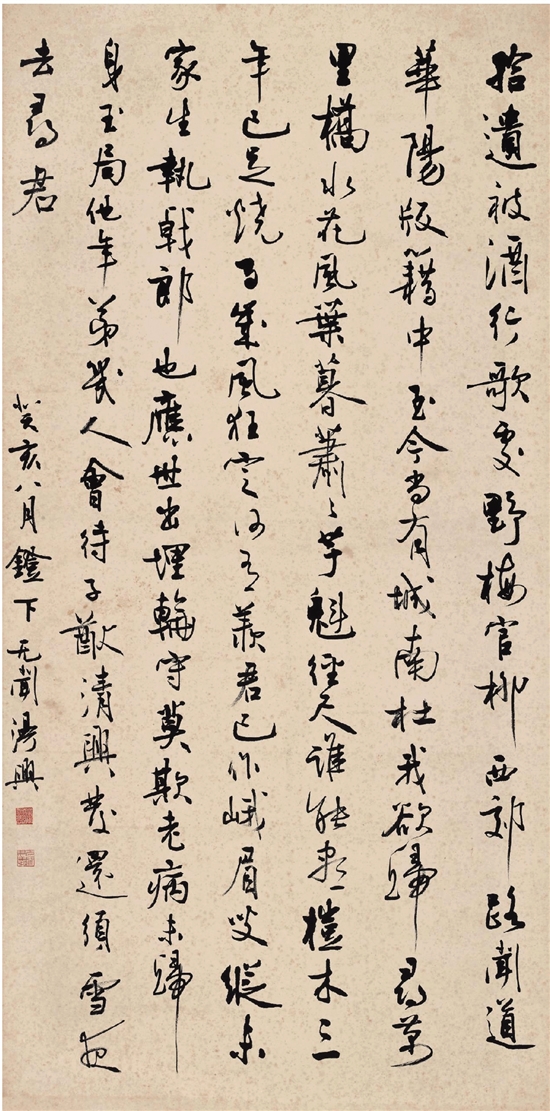 拾遺被酒行歌處野梅官柳西郊路聞道
華陽版籍中至今尚有城南杜我欲歸尋萬
里橋水花風葉暮蕭〻芋魁徑尺誰能盡榿木三
年已足燒百歲風狂定何有羨君已作峨眉叟縱未
家生執戟郎也應世出埋輪守莫欺老病未歸
身玉局他年第幾人會待子猷清興發還須雪夜
去尋君
癸亥八月鐙下无聞湯興